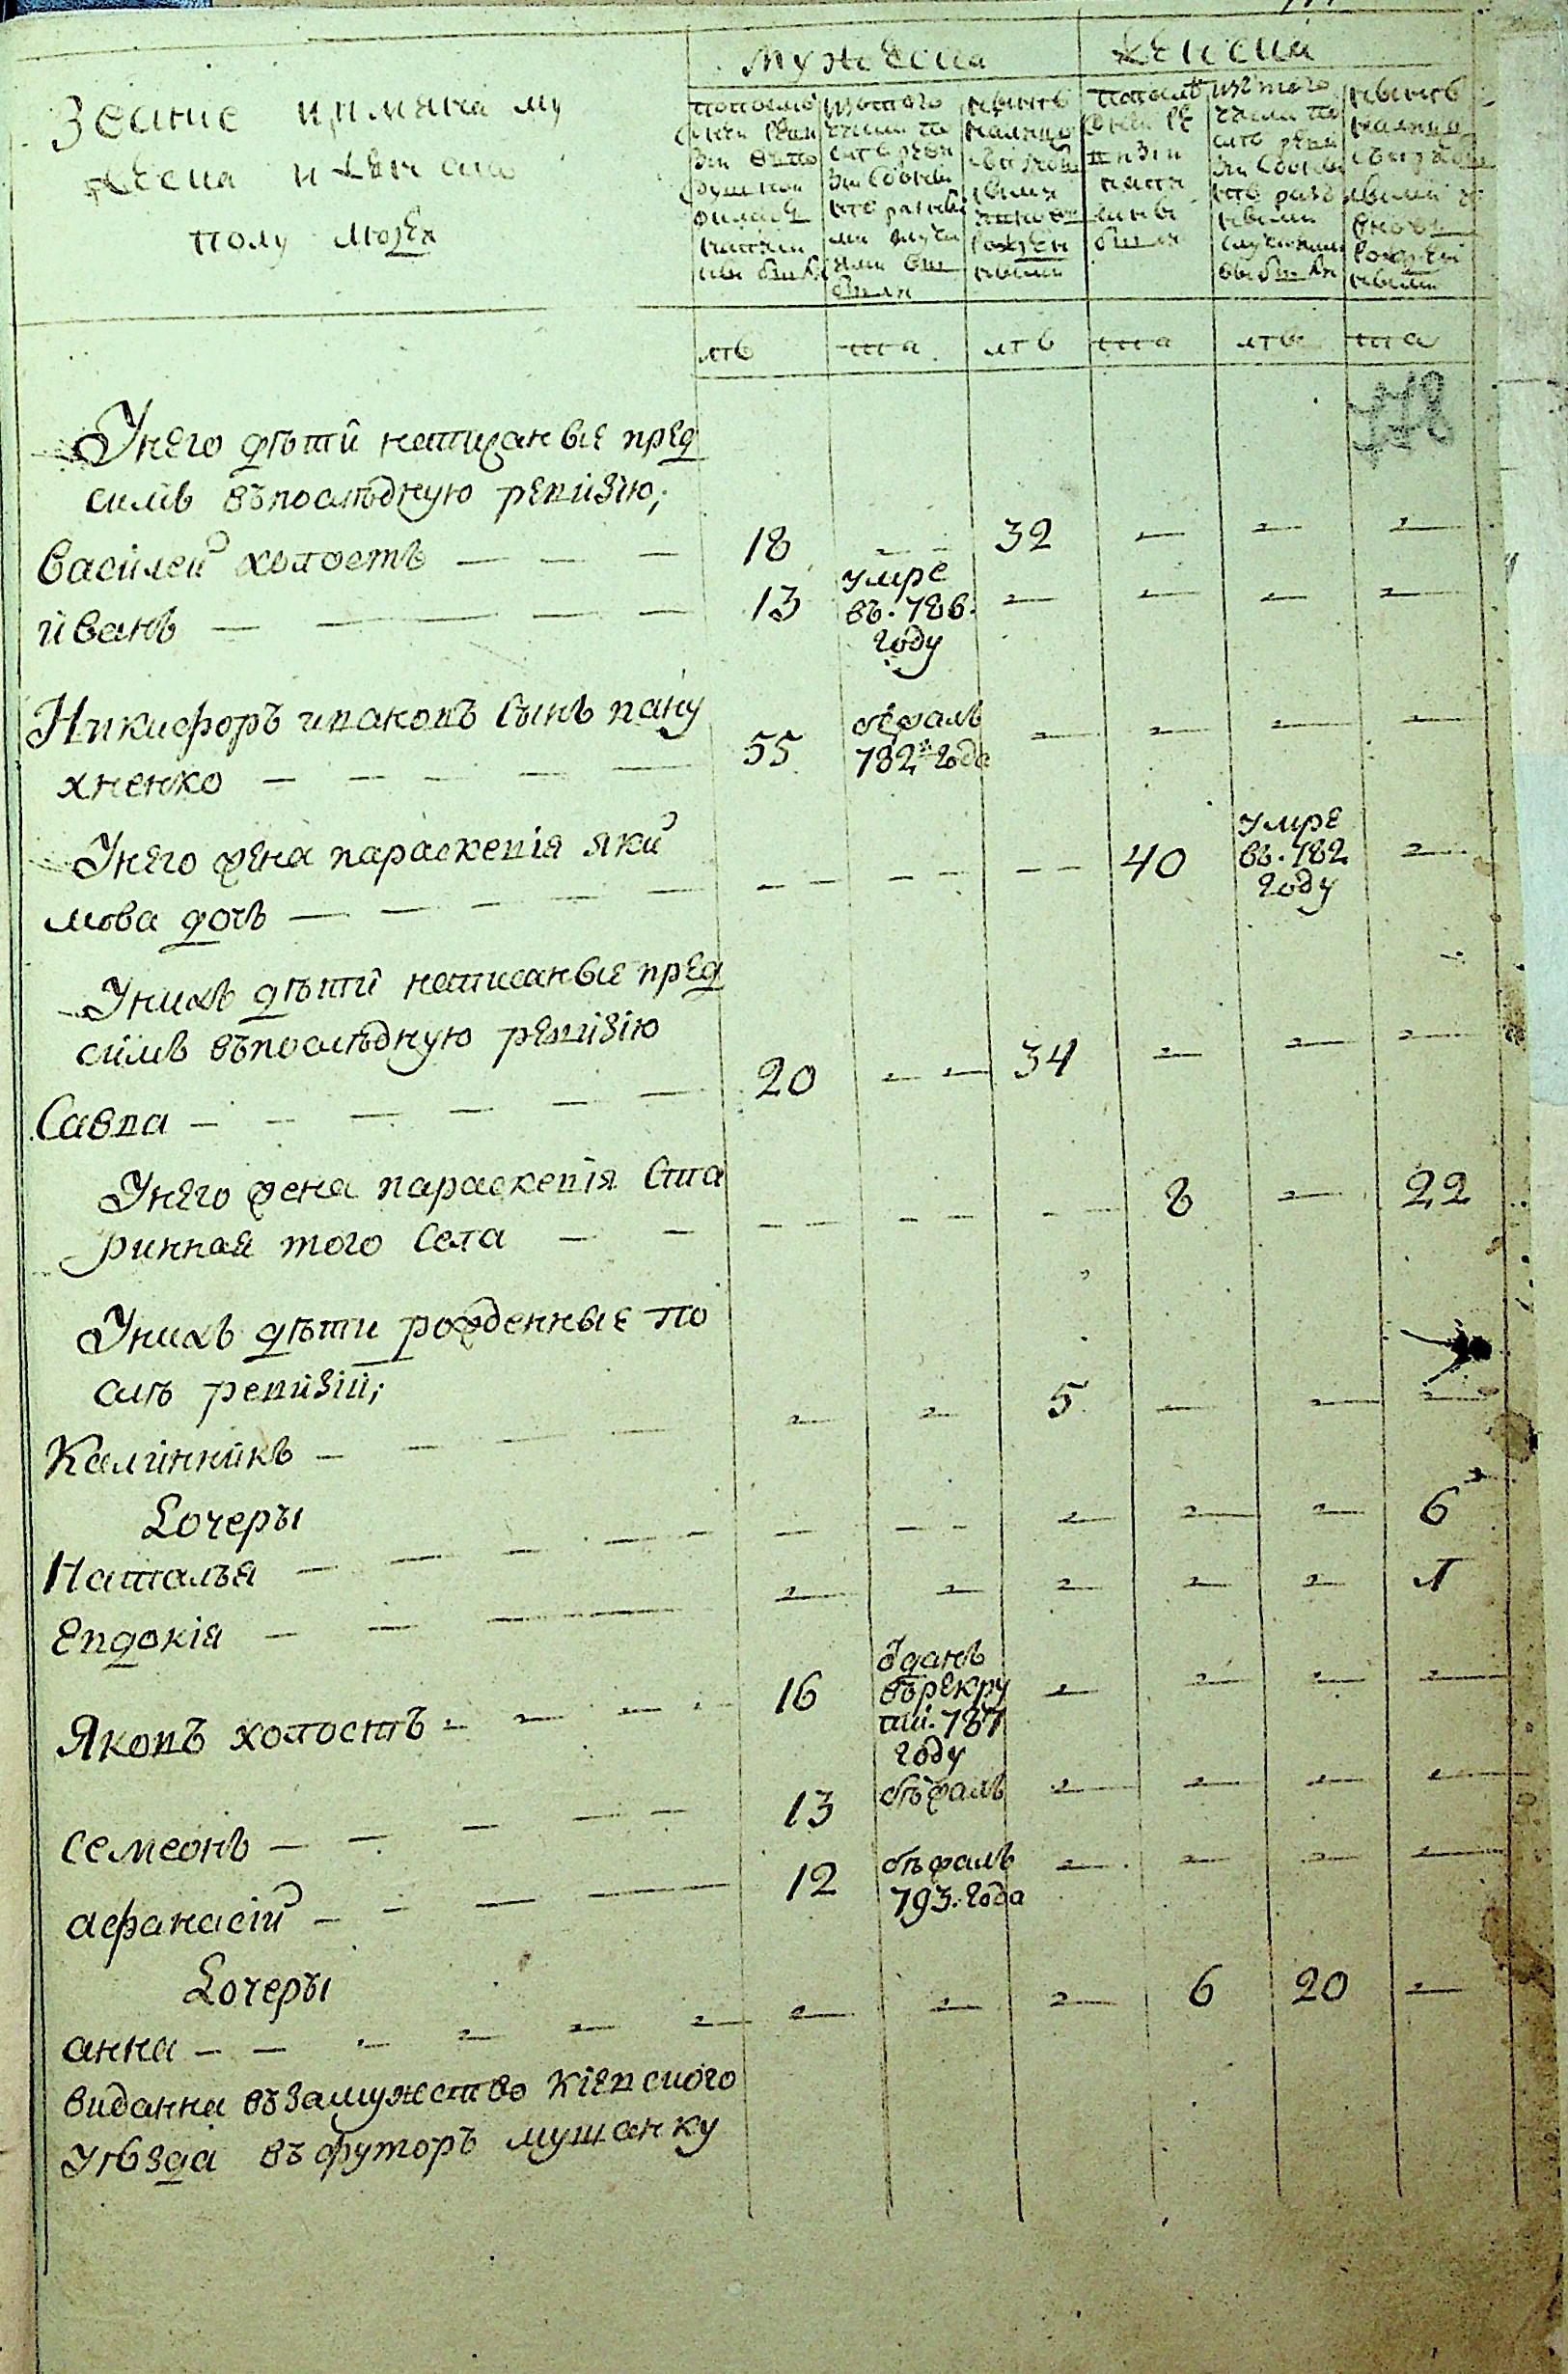 Звание и имяна му
жеска и женска
полу людеи
мужеска
женска
попослѣ
дней реви
зіи
изтого
числа по
слѣ реви
зіи
нынѣ
налицо
попослѣ
дней ре
визіи
изтого
числа по
слѣ реви
зіи
нынѣ
налицо
лѣ
та
лѣ
та
лѣ
та
778
Унего дѣти написанные пред
симъ въпослѣдную ревизію;
Василей холостъ — — — 18 — — 32 — — —
иванъ — — — — — 13 умре въ. 786. году — — — —
Никифоръ иваковъ сынъ пану
хненко — — — — — 55 бѣжалъ 782го года — — — —
Унего жена параскевія яки
мова дочь — — — — — — — — 40 умре въ. 782 году —
Унихъ дѣти написанные пред
симъ въпослѣдную ревизію
Савва — — — — — — 20 — — 34 — — —
Унего жена параскевія ста
ринная того села — — — — — 8 — 22
Унихъ дѣти рожденные по
слѣ ревизіи;
Калинникъ — — — — — — 5 — — —
Дочеры
Наталья — — — — — — — — — — 6
Евдокія — — — — — — — — — 1
Яковъ холостъ — — — — 16 ѿданъ върекру ти. 787 году — — — —
семеонъ — — — — — 13 бѣжалъ — — — —
афанасій — — — — 12 бѣжалъ 793. года — — — —
Дочеры
анна — — — — — — — — — 6 20 —
виданна възамужество кіевского
уѣзда въ футоръ мушанку